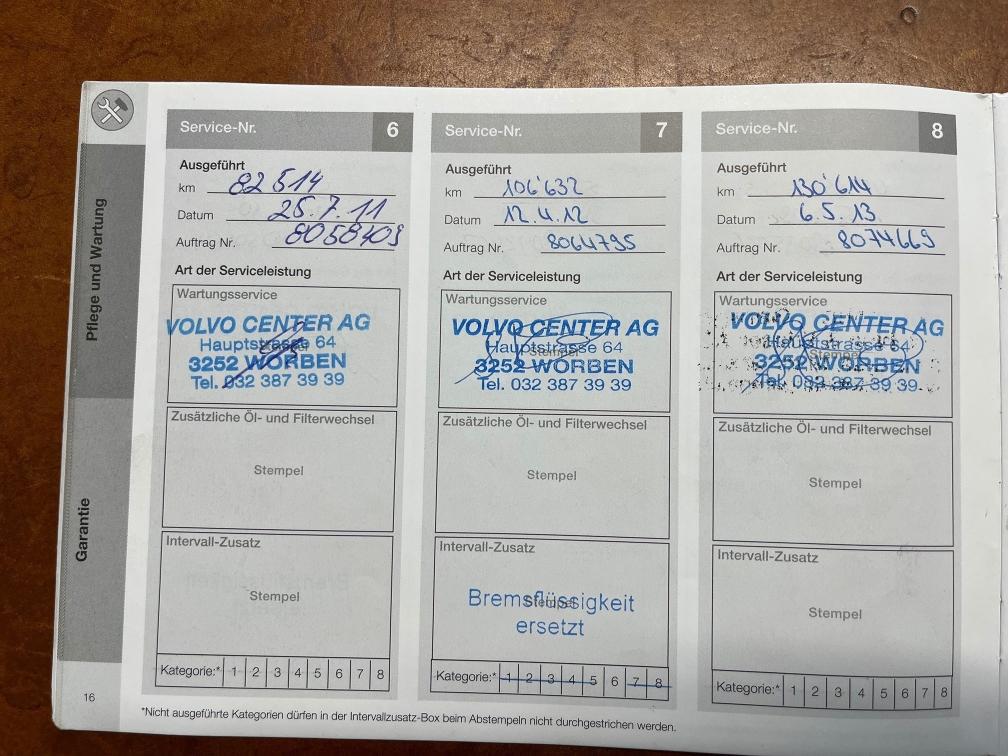 Pflege und Wartung
Garantie
Service-Nr. 6
Ausgeführt
km 82514
Datum 25.7.11
Auftrag Nr. 8058409
Art der Serviceleistung
Wartungsservice
VOLVO CENTER AG
Hauptstrasse 64
3252 WORBEN
Tel. 032 387 39 39
Zusätzliche Öl- und Filterwechsel
Stempel
Intervall-Zusatz
Stempel
Kategorie:* 1 2 3 4 5 6 7 8
Service-Nr. 7
Ausgeführt
km 106'632
Datum 12.4.12
Auftrag Nr. 8064795
Art der Serviceleistung
Wartungsservice
VOLVO CENTER AG
Hauptstrasse 64
Stempel
3252 WORBEN
Tel. 032 387 39 39
Zusätzliche Öl- und Filterwechsel
Stempel
Intervall-Zusatz
Stempel
Bremsflüssigkeit
ersetzt
Kategorie:* 1 2 3 4 5 6 7 8
Service-Nr. 8
Ausgeführt
km 130'614
Datum 6.5.13
Auftrag Nr. 8074669
Art der Serviceleistung
Wartungsservice
VOLVO CENTER AG
Hauptstrasse 64
Stempel
3252 WORBEN
Tel. 032 387 39 39
Zusätzliche Öl- und Filterwechsel
Stempel
Intervall-Zusatz
Stempel
Kategorie:* 1 2 3 4 5 6 7 8
16
*Nicht ausgeführte Kategorien dürfen in der Intervallzusatz-Box beim Abstempeln nicht durchgestrichen werden.